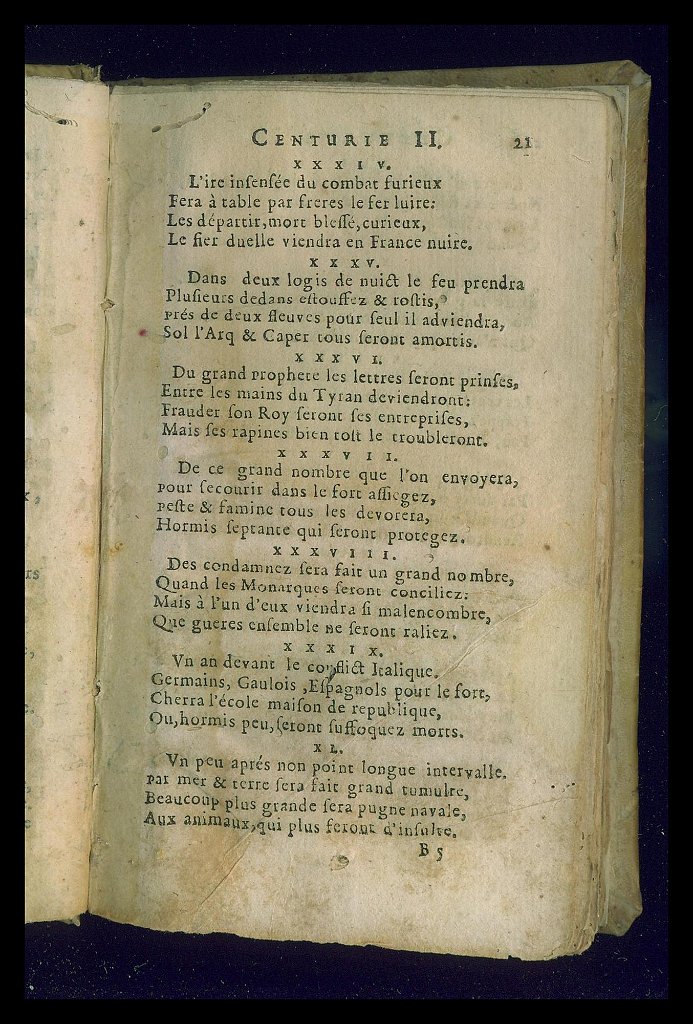 CENTURIE II. 21
XXXIV.
L'ire inſenſée du combat furieux
Fera à table par freres le fer luire:
Les départir, mort bleſſé, curieux,
Le fier duelle viendra en France nuire.
XXXV.
Dans deux logis de nuict le feu prendra
Pluſieurs dedans eſtouffez & roſtis,
prés de deux fleuves pour ſeul il adviendra,
Sol l'Arq & Caper tous ſeront amortis.
XXXVI.
Du grand prophete les lettres ſeront prinſes,
Entre les mains du Tyran deviendront:
Frauder ſon Roy ſeront ſes entrepriſes,
Mais ſes rapines bien toſt le troubleront.
XXXVII.
De ce grand nombre que l'on envoyera,
pour ſecourir dans le fort aſſiegez,
peſte & famine tous les devorera,
Hormis ſeptante qui ſeront protegez.
XXXVIII.
Des condamnez ſera fait un grand nombre,
Quand les Monarques ſeront conciliez:
Mais à l'un d'eux viendra ſi malencombre,
Que gueres enſemble ne ſeront raliez.
XXXIX.
Vn an devant le conflict Italique.
Germains, Gaulois, Eſpagnols pour le fort,
Cherra l'école maiſon de republique,
Ou, hormis peu, ſeront ſuffoquez morts.
XL.
Vn peu aprés non point longue intervalle.
par mer & terre ſera fait grand tumulte,
Beaucoup plus grande ſera pugne navale,
Aux animaux, qui plus feront d'inſulte.
B 5